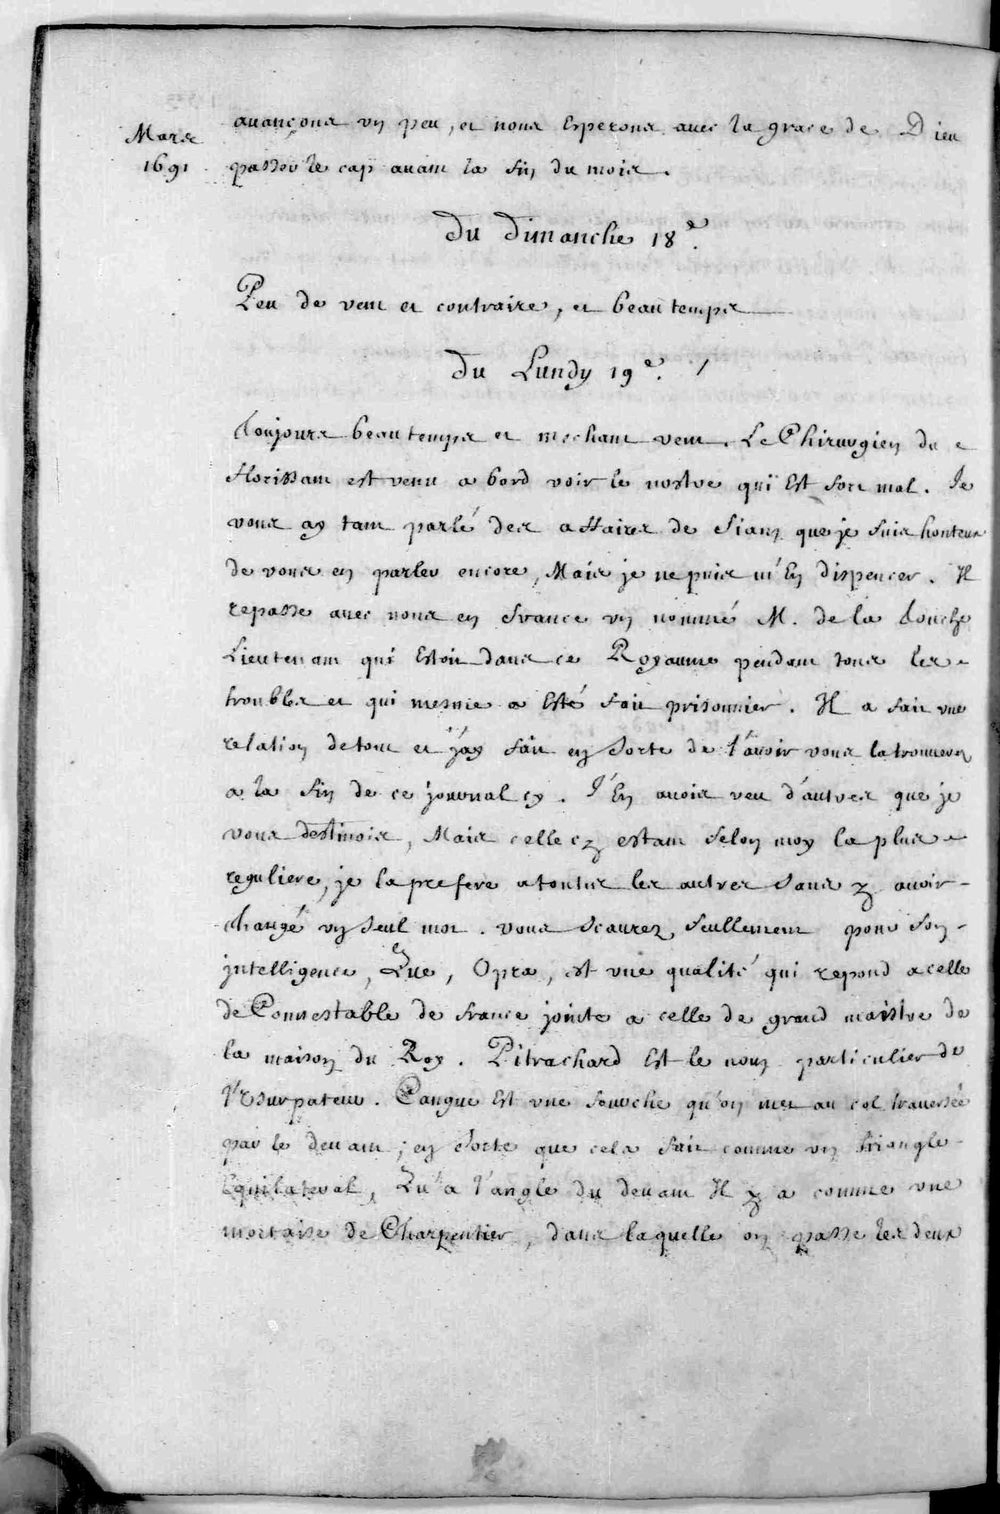 Mars
1691
auançons vn peu, et nous Esperons auec la grace de Dieu
passer le cap auant la fin du mois.
du dimanche 18e.
Peu de vent et contraire, et beau temps
du Lundy 19e. /
toujours beau temps et mechant vent. Le Chirurgien du
florissant est venu a bord voir le nostre qui Est fort mal. Je
vous ay tant parlé des affaires de Siam que je suis honteux
de vous en parler encore, Mais je ne puis m'En dispencer. Il
repasse auec nous en france vn nommé M. de la touche
Lieutenant qui Estoit dans ce Royaume pendant tous les
troubles et qui mesme a Esté fait prisonnier. Il a fait vne
relation de tout et j'ay fait en sorte de l'auoir vous la trouuerez
a la fin de ce journal cy. J'En auois veu d'autres que je
vous destinois, Mais celle cy estant selon moy la plus
reguliere, je la prefere a toutes les autres sans y auoir
changé vn seul mot. vous scaurez seullement pour son
intelligence, Que, Opra, est vne qualité qui repond a celle
de Connestable de france jointe a celle de grand maistre de
la maison du Roy. Pitrachard Est le nom particulier de
l'Vsurpateur. Cangue Est vne fourche qu'on met au col trauersée
par le deuant; en sorte que cela fait comme vn triangle
Equilateral, Qu'a l'angle du deuant Il y a comme vne
mortaise de Charpentier, dans laquelle on passe les deux